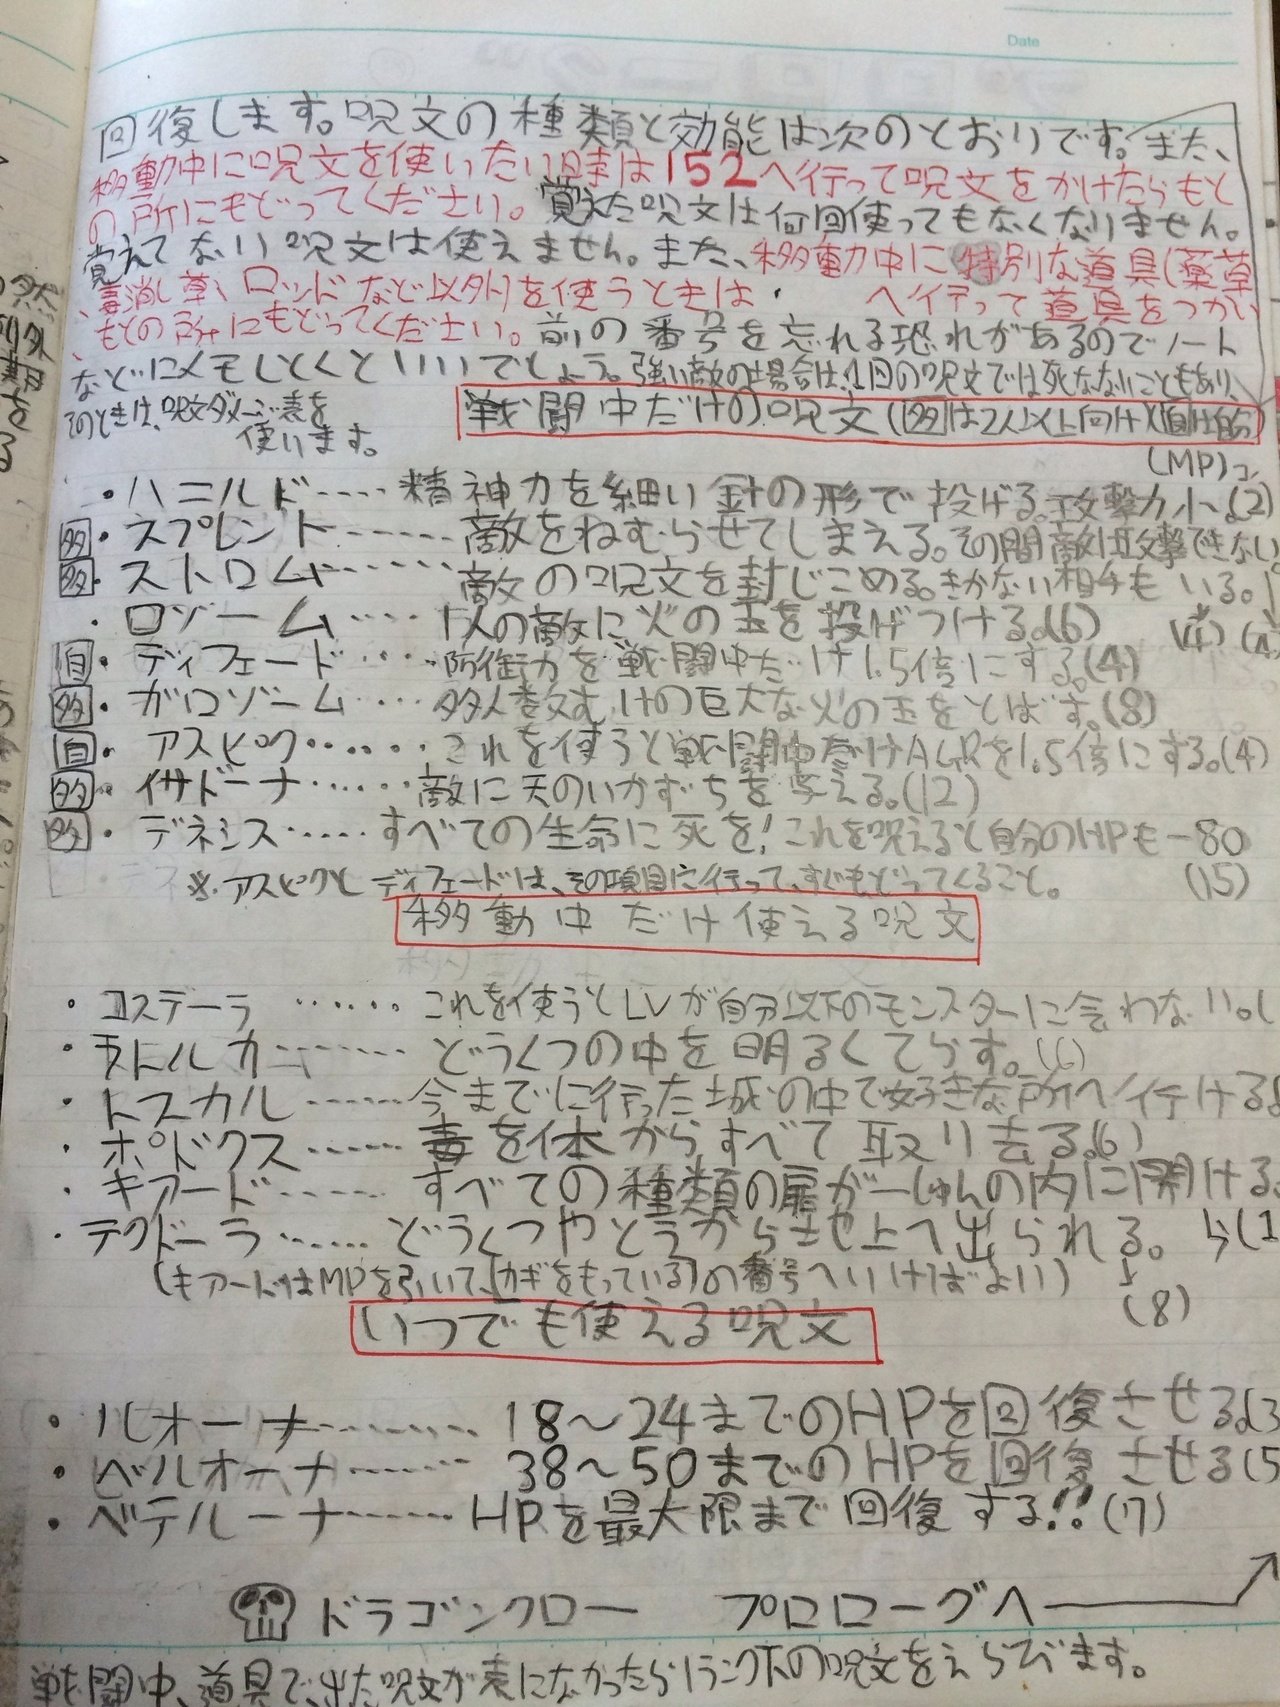 Date
回復します。呪文の種類と効能は次のとおりです。また、
移動中に呪文を使いたい時は152へ行って呪文をかけたらもと
の所にもどってください。覚えた呪文は何回使ってもなくなりません。
覚えてない呪文は使えません。また、移動中に特別な道具(薬草
、毒消し草、ロッドなど以外)を使うときは・ へ行って道具をつかい
、もとの所にもどってください。前の番号を忘れる恐れがあるのでノート
などにメモしとくといいでしょう。強い敵の場合は、1回の呪文では死なないこともあり、
そのときは、呪文ダメージ表を
使います。
戦闘中だけの呪文(多は2人以上向け)(自は自分)
(MP)
・ハニルド……精神力を細い針の形で投げる。攻撃力小。(2)
多・スプレント……敵をねむらせてしまえる。その間敵は攻撃できない。
多・ストロム……敵の呪文を封じこめる。きかない相手もいる。
(4)
・ロゾーム……1人の敵に火の玉を投げつける。(6)
自・ディフェード……防御力を戦闘中だけ1.5倍にする。(4)
多・ガロゾーム……多人数むけの巨大な火の玉をとばす。(8)
自・アスピク……これを使うと戦闘中だけAGRを1.5倍にする。(4)
多・イサドーナ……敵に天のいかずちを与える。(12)
多・デネシス……すべての生命に死を!これを唱えると自分のHPも-80
(15)
※アスピクとディフェードは、その項目に行って、すぐもどってくること。
移動中だけ使える呪文
・コステーラ……これを使うとLVが自分以下のモンスターに会わない。(
・ラトルカ……どうくつの中を明るくてらす。(6)
・トスカル……今までに行った城の中で好きな所へ行ける。
・ポドクス……毒を体からすべて取り去る。(6)
・キアード……すべての種類の扉が一しゅんの内に開ける。
・テクドーラ……どうくつやとうから地上へ出られる。 (1
(キアードはMPを引いて、[カギをもっている]の番号へいけばよい)
(8)
いつでも使える呪文
・ルオーナ……18〜24までのHPを回復させる。(3
・ベルオーナ……38〜50までのHPを回復させる(5
・ベテルーナ……HPを最大限まで回復する!!(17)
ドラゴンクロー プロローグへ
戦闘中、道具で、出た呪文が表になかったら1ランク下の呪文をえらびます。